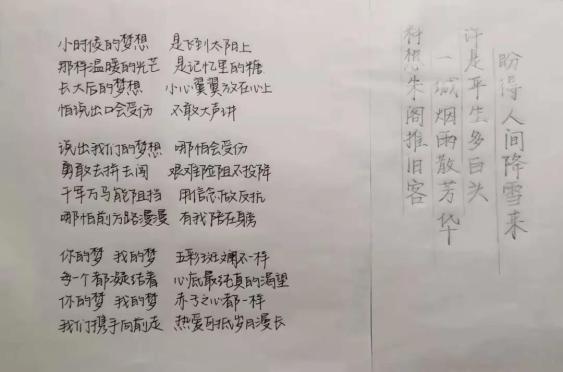 小时候的梦想 是飞到太阳上
那样温暖的光芒 是记忆里的糖
长大后的梦想 小心翼翼放在心上
怕说出口会受伤 不敢大声讲
说出我们的梦想 哪怕会受伤
勇敢去拼去闯 艰难险阻不投降
千军万马能阻挡 用信念做反抗
哪怕前方路漫漫 有我陪在身旁
你的梦 我的梦 五彩斑斓不一样
每一个都凝结着 心底最纯真的渴望
你的梦 我的梦 赤子之心都一样
我们携手向前走 热爱可抵岁月漫长
盼得人间降雪来
许是平生多白头
一城烟雨散芳华
料想朱阁推旧客